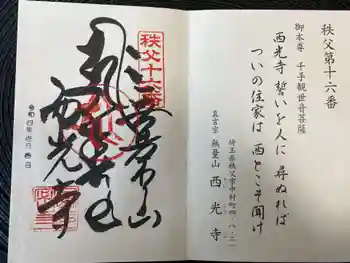 秩父第十六番
御本尊 千手観世音菩薩
西光寺 誓いを人に 尋ぬれば
ついの住家は 西とこそ聞け
埼玉県秩父市中村町四・八・二一
真言宗 無量山 西光寺
秩父十六番
無量山
西光寺